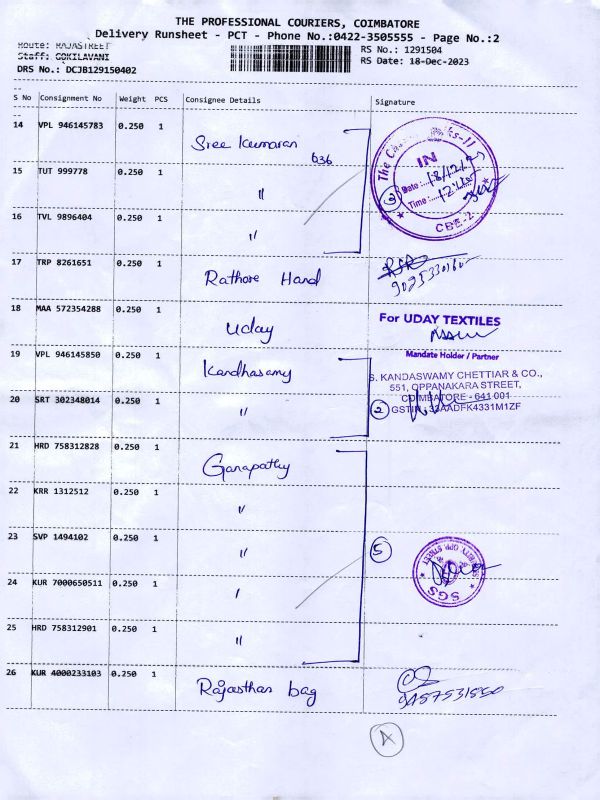 THE PROFESSIONAL COURIERS, COIMBATORE
Delivery Runsheet - PCT - Phone No.:0422-3505555 - Page No.:2
Route: RAJASTREET
Staff: GOKILAVANI
DRS No.: DCJB129150402
RS No.: 1291504
RS Date: 18-Dec-2023
S No Consignment No Weight PCS Consignee Details Signature
14 VPL 946145783 0.250 1 Sree Kumaran
636
15 TUT 999778 0.250 1 〃
16 TVL 9896404 0.250 1 〃
IN
Date: 18/12/23
Time:
CBE-2
3
17 TRP 8261651 0.250 1 Rathore Hand
18 MAA 572354288 0.250 1 Uday
For UDAY TEXTILES
Mandate Holder / Partner
19 VPL 946145850 0.250 1 Kandhasamy
S. KANDASWAMY CHETTIAR & CO.,
551, OPPANAKARA STREET,
COIMBATORE - 641 001
GSTIN: 33AADFK4331M1ZF
20 SRT 302348014 0.250 1 〃
2
21 HRD 758312828 0.250 1 Ganapathy
22 KRR 1312512 0.250 1 〃
23 SVP 1494102 0.250 1 〃
5
SGS
24 KUR 7000650511 0.250 1 /
25 HRD 758312901 0.250 1 〃
26 KUR 4000233103 0.250 1 Rajasthan bag
9457531550
A